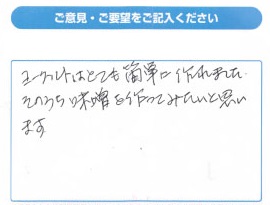 ご意見・ご要望をご記入ください
ヨーグルトはとても簡単に作れました.
そのうち味噌を作ってみたいと思い
ます